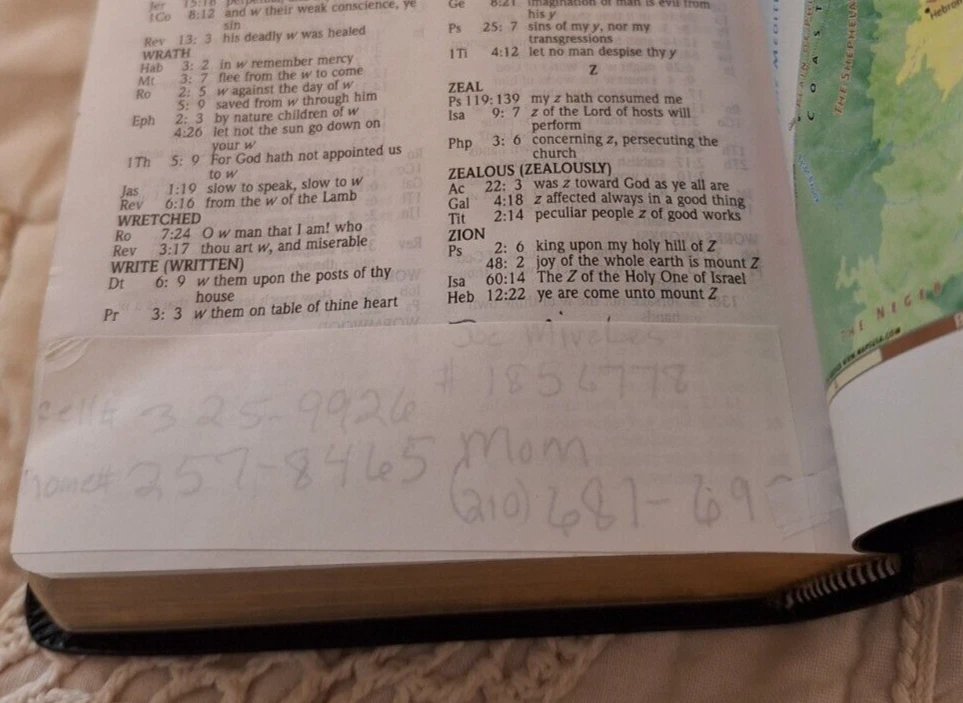 8:12 and w their weak conscience, ye
sin
Rev 13: 3 his deadly w was healed
WRATH
Hab 3: 2 in w remember mercy
Mt 3: 7 flee from the w to come
Ro 2: 5 w against the day of w
5: 9 saved from w through him
Eph 2: 3 by nature children of w
4:26 let not the sun go down on
your w
1Th 5: 9 For God hath not appointed us
to w
Jas 1:19 slow to speak, slow to w
Rev 6:16 from the w of the Lamb
WRETCHED
Ro 7:24 O w man that I am! who
Rev 3:17 thou art w, and miserable
WRITE (WRITTEN)
Dt 6: 9 w them upon the posts of thy
house
Pr 3: 3 w them on table of thine heart
Ge 8:21 imagination of man is evil from
his y
Ps 25: 7 sins of my y, nor my
transgressions
1Ti 4:12 let no man despise thy y
Z
ZEAL
Ps 119:139 my z hath consumed me
Isa 9: 7 z of the Lord of hosts will
perform
Php 3: 6 concerning z, persecuting the
church
ZEALOUS (ZEALOUSLY)
Ac 22: 3 was z toward God as ye all are
Gal 4:18 z affected always in a good thing
Tit 2:14 peculiar people z of good works
ZION
Ps 2: 6 king upon my holy hill of Z
48: 2 joy of the whole earth is mount Z
Isa 60:14 The Z of the Holy One of Israel
Heb 12:22 ye are come unto mount Z
Joe
# 1856778
cell# 325-9926
home# 257-8465
Mom
(210) 687-69
Hebron
THE SHEPHELAH
COAST
THE NEGEB